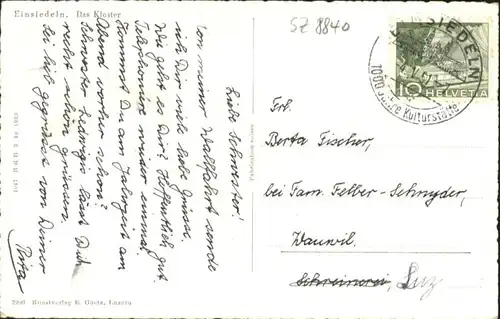 Einsiedeln. Das Kloster
SZ 8840
EINSIEDELN
1000 Jahre Kulturstätte
10 HELVETIA
Liebe Schwester!
Von meiner Wallfahrt sende
ich Dir viele liebe Grüsse.
Wie geht es Dir? Hoffentlich gut.
Telephoniere wieder einmal.
Kommst Du am Jahrzeit am
Abend vorher schon?
Schwester Hedwigis lässt Dich
recht schön grüssen.
Sei lieb gegrüsst von Deiner
Rita
Frl.
Berta Fischer,
bei Fam. Felber-Schnyder,
Wauwil.
Schreinerei, Luz
2290 Kunstverlag E. Goetz, Luzern